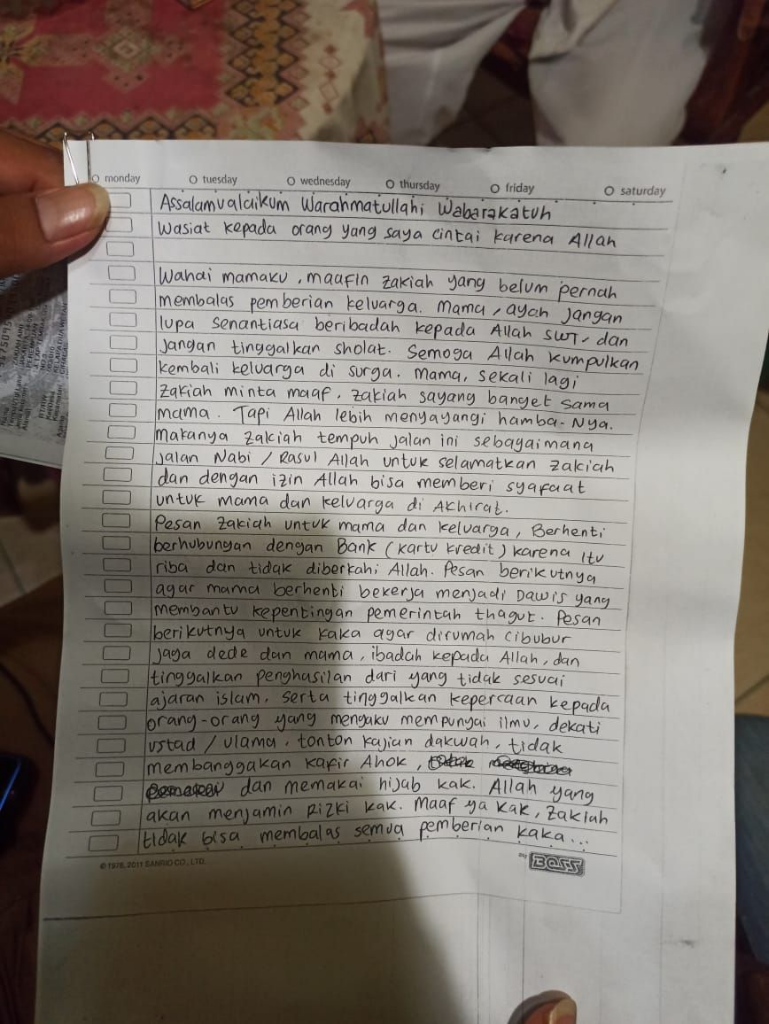 monday tuesday wednesday thursday friday saturday
Assalamualaikum Warahmatullahi Wabarakatuh
Wasiat kepada orang yang saya cintai karena Allah
Wahai mamaku, maafin zakiah yang belum pernah
membalas pemberian keluarga. Mama, ayah jangan
lupa senantiasa beribadah kepada Allah SWT, dan
jangan tinggalkan sholat. Semoga Allah kumpulkan
kembali keluarga di surga. Mama, sekali lagi
zakiah minta maaf, zakiah sayang banget sama
mama. Tapi Allah lebih menyayangi hamba-Nya.
Makanya zakiah tempuh jalan ini sebagaimana
jalan Nabi / Rasul Allah untuk selamatkan zakiah
dan dengan izin Allah bisa memberi syafaat
untuk mama dan keluarga di Akhirat.
Pesan zakiah untuk mama dan keluarga, Berhenti
berhubungan dengan Bank (kartu kredit) karena itu
riba dan tidak diberkahi Allah. Pesan berikutnya
agar mama berhenti bekerja menjadi Dawis yang
membantu kepentingan pemerintah thagut. Pesan
berikutnya untuk kaka agar dirumah cibubur
jaga dede dan mama, ibadah kepada Allah, dan
tinggalkan penghasilan dari yang tidak sesuai
ajaran islam, serta tinggalkan kepercaan kepada
orang-orang yang mengaku mempunyai ilmu, dekati
ustad / ulama, tonton kajian dakwah, tidak
membanggakan kafir Ahok,
dan memakai hijab kak. Allah yang
akan menjamin Rizki kak. Maaf ya kak, zakiah
tidak bisa membalas semua pemberian kaka...
© 1976, 2011 SANRIO CO., LTD.